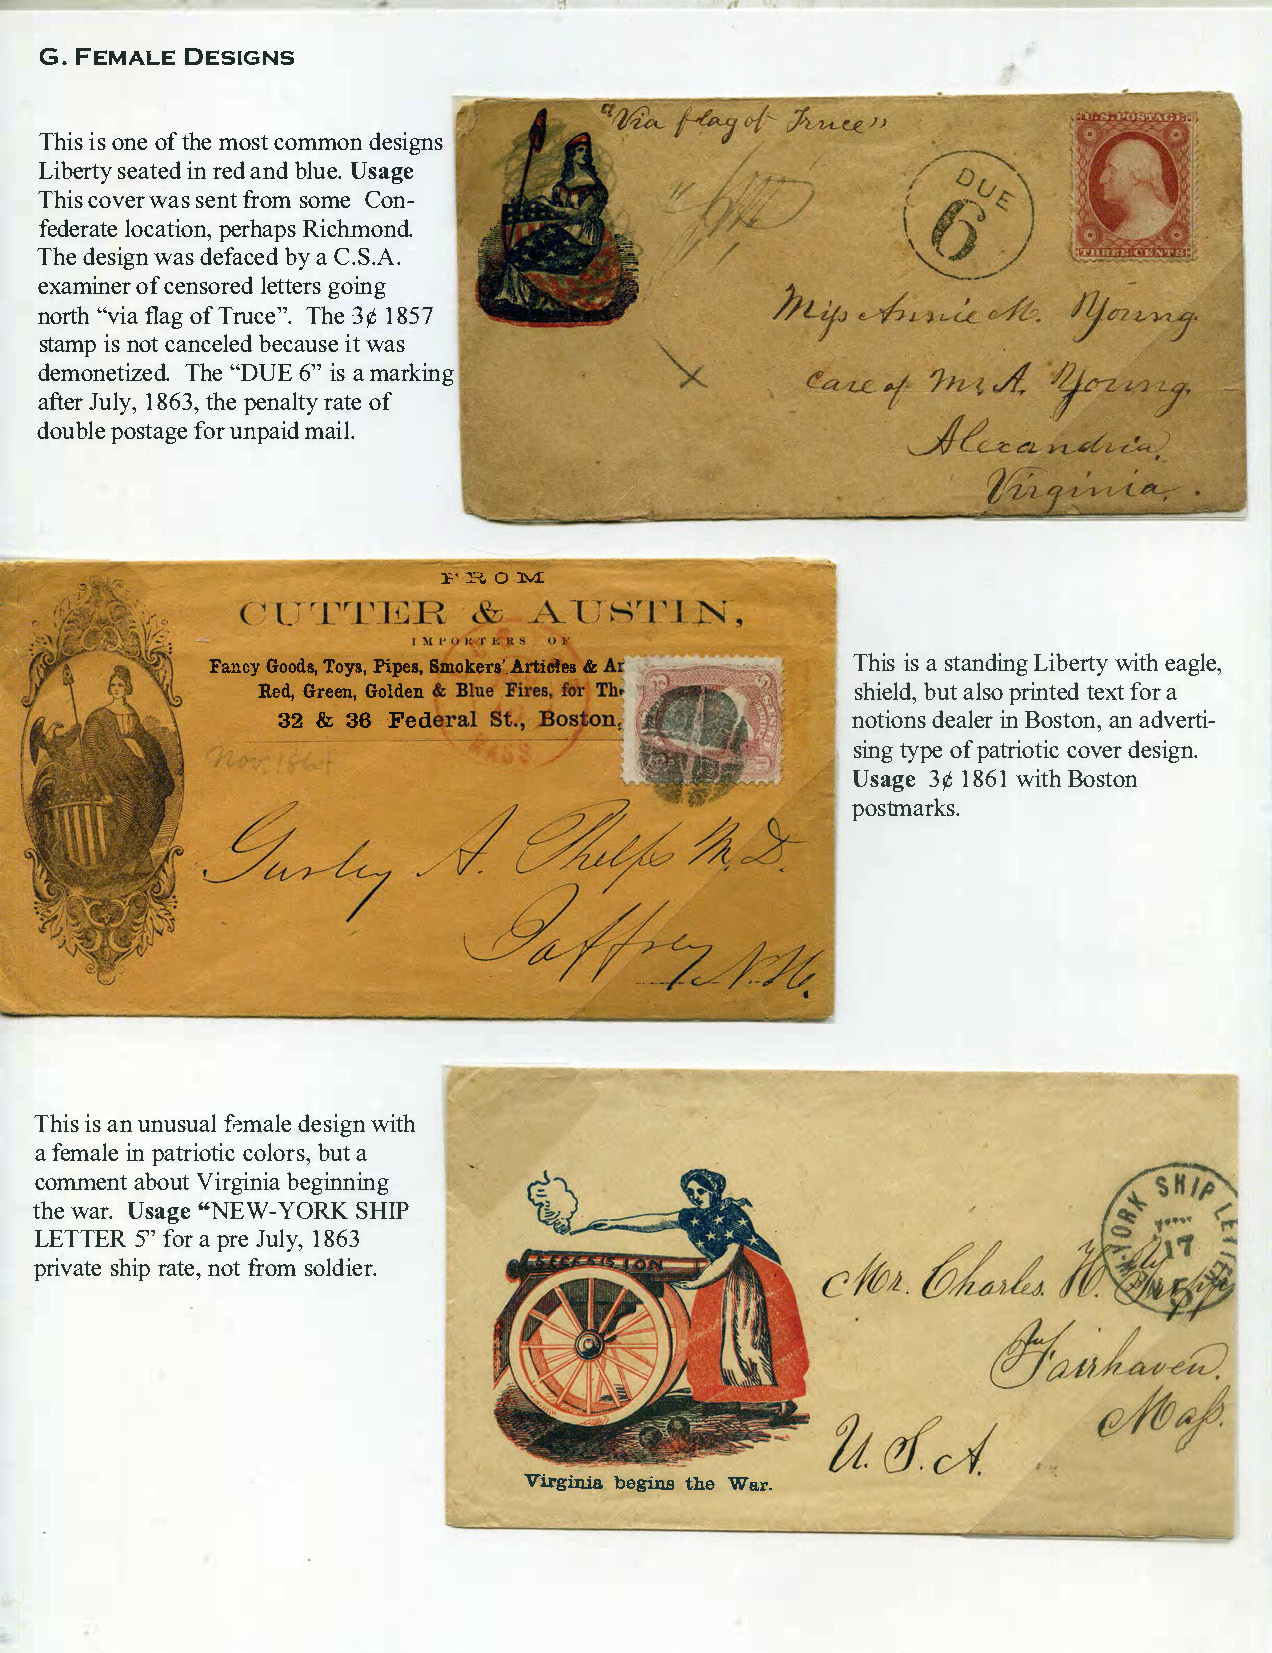 G. FEMALE DESIGNS
This is one of the most common designs
Liberty seated in red and blue. Usage
This cover was sent from some Con-
federate location, perhaps Richmond.
The design was defaced by a C.S.A.
examiner of censored letters going
north “via flag of Truce”. The 3¢ 1857
stamp is not canceled because it was
demonetized. The “DUE 6” is a marking
after July, 1863, the penalty rate of
double postage for unpaid mail.
"Via flag of Truce"
DUE
6
U.S. POSTAGE
THREE CENTS
Miss Annie M. Young
Care of Mr. A. Young
Alexandria,
Virginia.
FROM
CUTTER & AUSTIN,
IMPORTERS OF
Fancy Goods, Toys, Pipes, Smokers' Articles & Ar
Red, Green, Golden & Blue Fires, for Th
32 & 36 Federal St., Boston,
MASS
Nov. 1864
Gurley A. Phelps M.D.
Jaffrey
N.H.
This is a standing Liberty with eagle,
shield, but also printed text for a
notions dealer in Boston, an adverti-
sing type of patriotic cover design.
Usage 3¢ 1861 with Boston
postmarks.
This is an unusual female design with
a female in patriotic colors, but a
comment about Virginia beginning
the war. Usage “NEW-YORK SHIP
LETTER 5” for a pre July, 1863
private ship rate, not from soldier.
SECESSION
Virginia begins the War.
NEW-YORK SHIP LETTER
17
5
Mr. Charles H.
Fairhaven.
Mass.
U.S.A.